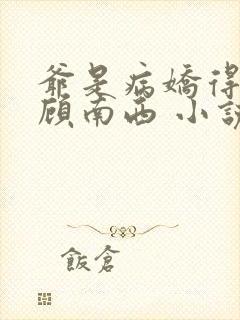 爺是病嬌得
顧南西 小說
飯倉